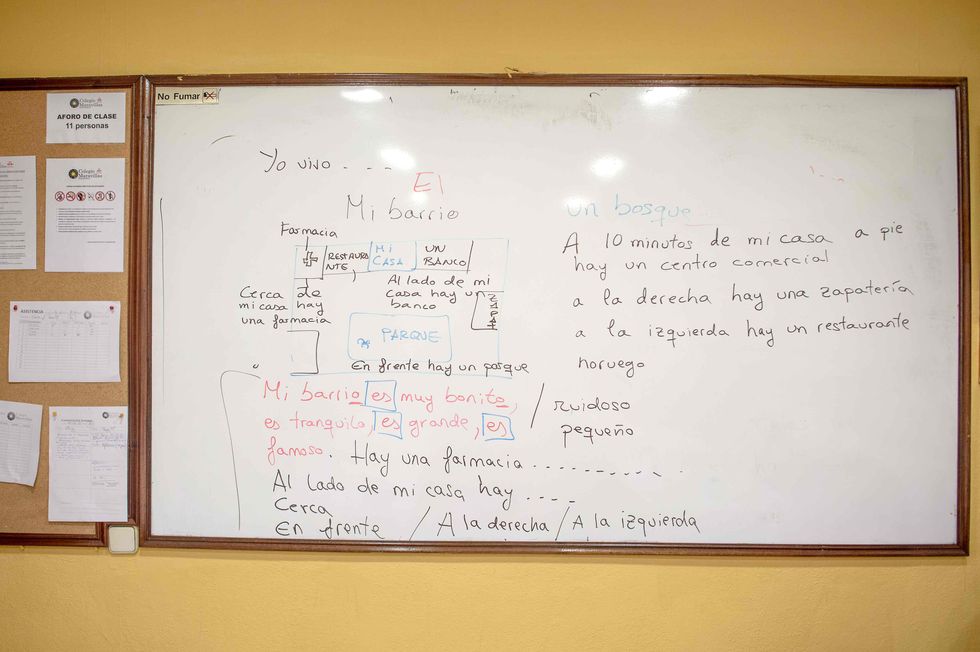 No Fumar
Colegio
Maravillas
AFORO DE CLASE
11 personas
Colegio
Maravillas
ASISTENCIA
Yo vivo - - - -
El
Mi barrio
Farmacia
RESTAURA
NTE
MI
CASA
UN
BANCO
Al lado de mi
casa hay un
banco
ZAPAT
Cerca de
mi casa hay
una farmacia
PARQUE
En frente hay un parque
Mi barrio es muy bonito,
es tranquilo, es grande, es
famoso. Hay una farmacia - - - - - - - - - -
/ ruidoso
pequeño
Al lado de mi casa hay - - - -
Cerca
En frente / A la derecha / A la izquierda
un bosque
A 10 minutos de mi casa a pie
hay un centro comercial
a la derecha hay una zapatería
a la izquierda hay un restaurante
noruego